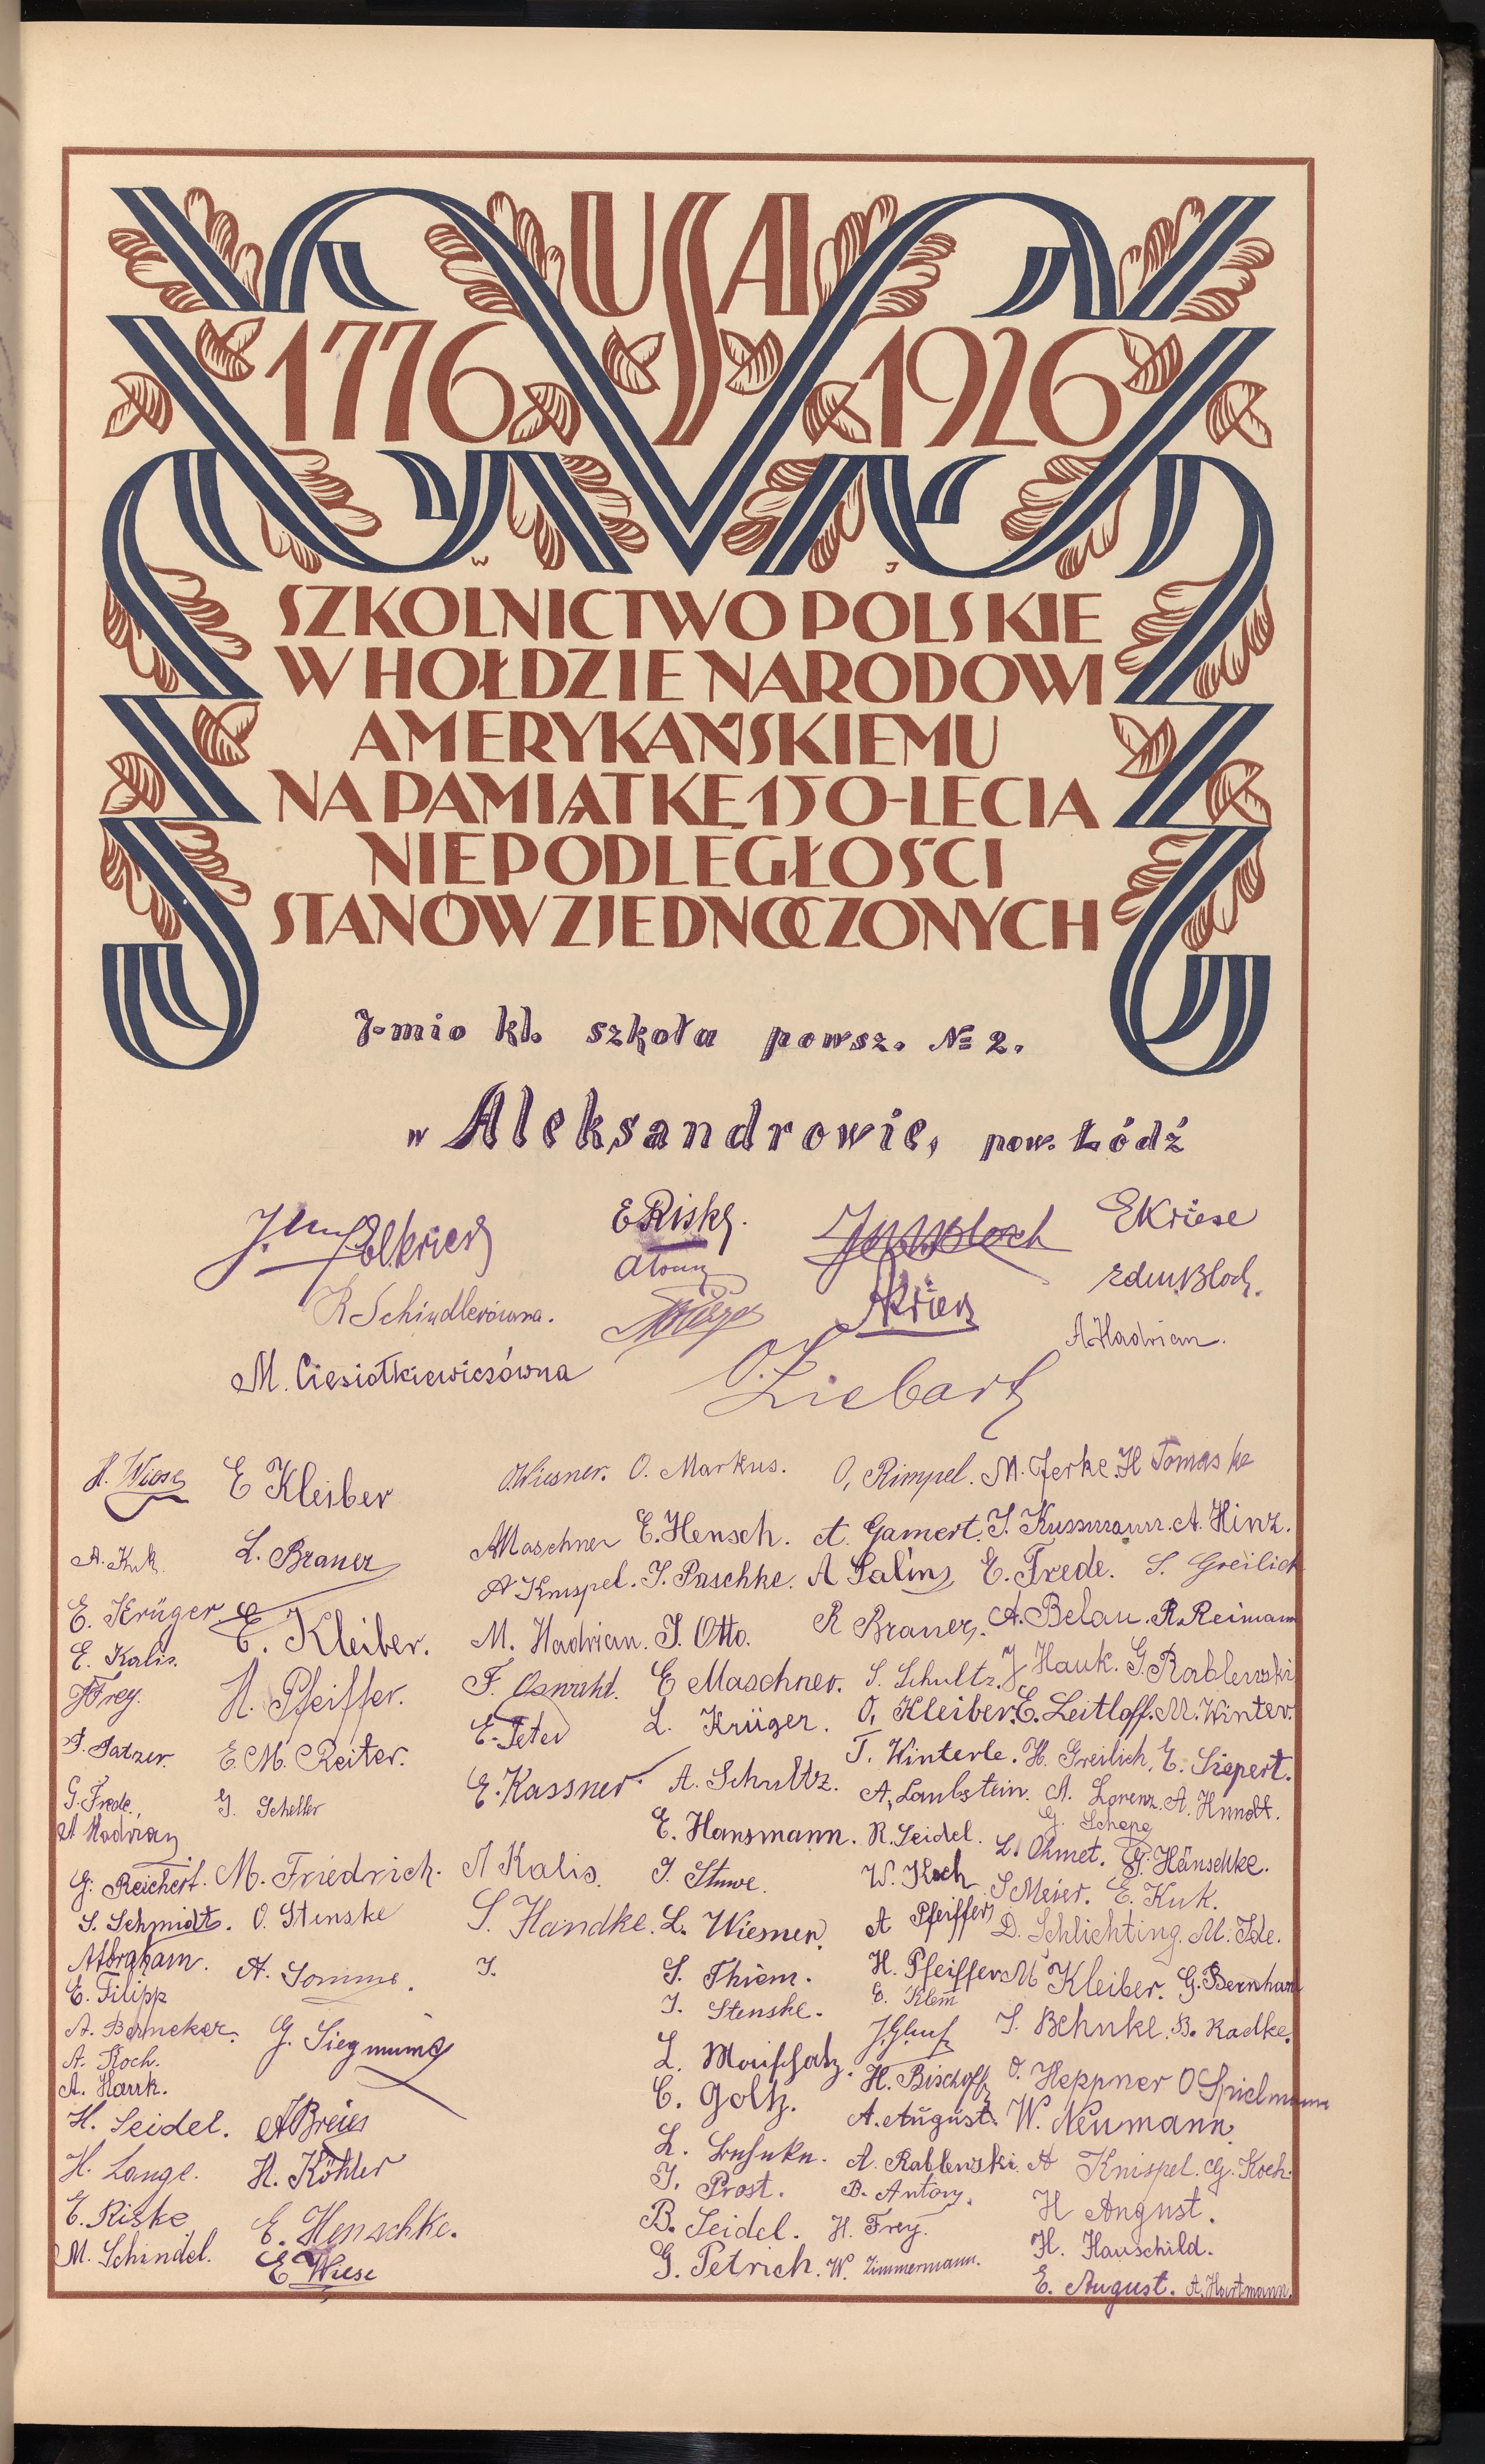 USA
1776 1926
W J
SZKOLNICTWO POLSKIE
W HOŁDZIE NARODOWI
AMERYKAŃSKIEMU
NA PAMIĄTKĘ 150-LECIA
NIEPODLEGŁOŚCI
STANÓW ZJEDNOCZONYCH
7-mio kl. szkoła powsz. № 2.
w Aleksandrowie, pow. Łódź
E Riske. E Kriese
R Schindlerówna. A. Hadrian.
M. Ciesiołkiewiczówna O. Liebart
H. Wiese E Kleiber O. Wiesner. O. Markus. O. Rimpel. M. Jerke. H Tomaske
A. Kuk. L. Brauer A Maschner E. Hensch. A. Gamert. J. Kussmaun. A. Hinz.
A Knispel. J. Paschke. A Salin E. Frede. S. Greilich
E. Krüger E. Kleiber. M. Hadrian. J. Otto. R Brauer. A. Belau. R. Reimann
E. Kalis.
J Frey. H. Pfeiffer. F. Oswald. E Maschner. S. Schultz. J Hauk. G. Rablewski
E. Peter L. Krüger. O. Kleiber. E. Leitloff. M. Winter.
P. Patzer. E. M. Reiter. T. Winterle. H. Greilich. E. Siepert.
G. Frede. J. Scheller E. Kassner. A. Schultz. A. Laubstein. A. Lorenz. A. Hundt.
A Hadrian G. Schepe
E. Hansmann. R. Seidel. L. Ohmet. G. Hänschke.
G. Reichert. M. Friedrich. A Kalis. J. Stuwe. W. Koch S Meier. E. Kuk.
S. Schmidt. O. Stenske S. Handke. L. Wiesner. A Pfeiffer D. Schlichting. M. Ide.
A Abraham. A. Somme. J. S. Thiem. H. Pfeiffer M Kleiber. G. Bernhard
E. Filipp J. Stenske. E. Klem
A. Berneker. G. Siegmund J. Behnke. B. Radke.
A. Koch. L. H. Bischoff O. Heppner O Spielmann
A. Harrk. E. Goltz.
H. Seidel. A Breier A. August. W. Neumann.
H. Lange. H. Köhler L. A. Rablewski. A Knispel. G. Koch.
J. Prost. B. Antony.
E. Riske E. Henschke. B. Seidel. H. Frey. H August.
M. Schindel. E Wiese G. Petrich. W. Zimmermann. H. Hauschild.
E. August. A. Hartmann.